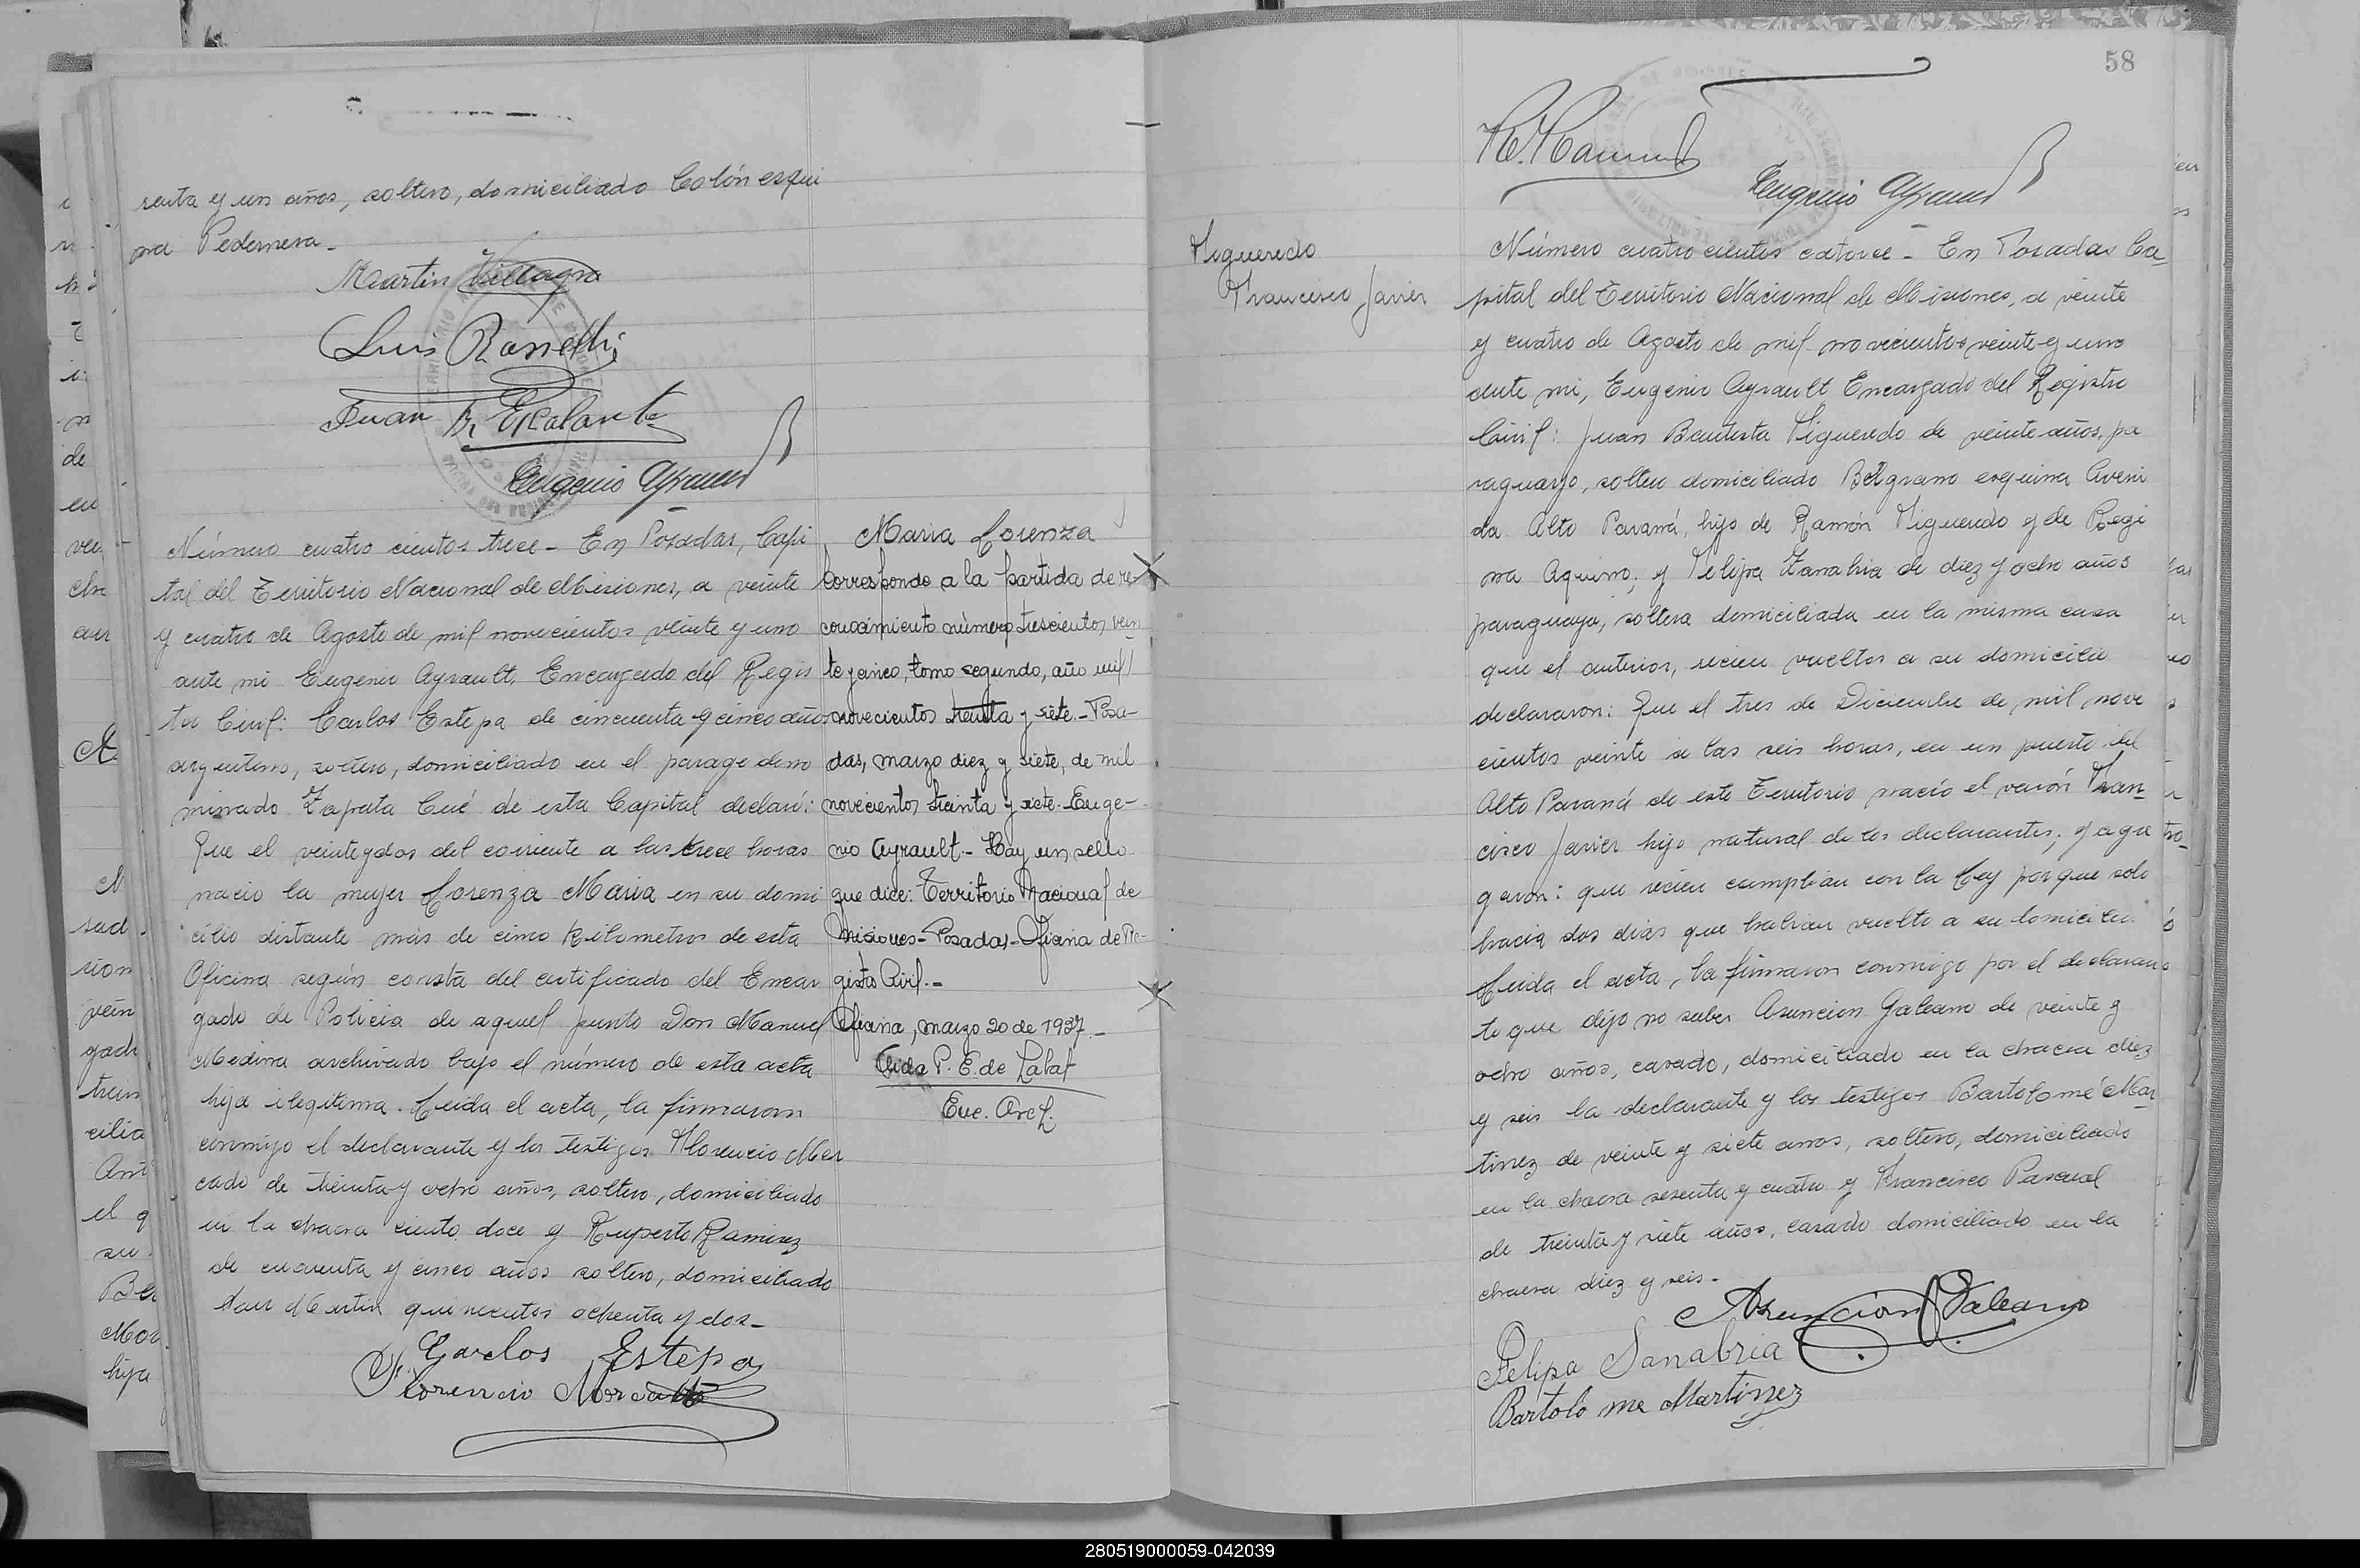 renta y un años, soltero, domiciliado Colón esqui
na Pedernera.-
Martin Villagra
Luis Rosselli
Juan B. Escalante
Eugenio Ayrault
Número cuatro cientos trece - En Posadas, Capi
tal del Territorio Nacional de Misiones, a veinte
y cuatro de Agosto de mil novecientos veinte y uno
ante mi Eugenio Ayrault, Encargado del Regis
tro Civil: Carlos Estepa de cincuenta y cinco años
argentino, soltero, domiciliado en el parage deno
minado Zapata Cué de esta Capital declaró:
Que el veinte y dos del corriente a las trece horas
nacio la mujer Lorenza Maria en su domi
cilio distante más de cinco kilometros de esta
Oficina según consta del certificado del Encar
gado de Policia de aquel punto Don Manuel
Medina archivado bajo el número de esta acta
hija ilegitima. Leida el acta, la firmaron
conmigo el declarante y los testigos Florencio Mer
cado de treinta y ocho años, soltero, domiciliado
en la chacra ciento doce y Ruperto Ramirez
de cuarenta y cinco años soltero, domiciliado
San Martin quinientos ochenta y dos-
Carlos Estepa
Florencio Mercado
Maria Lorenza
Corresponde a la partida de re-
conocimiento número trescientos vein
te y cinco, tomo segundo, año mil
novecientos treinta y siete.- Posa-
das, marzo diez y siete, de mil
novecientos treinta y siete.- Euge-
nio Ayrault.- Hay un sello
que dice: Territorio Nacional de
Misiones - Posadas - Oficina de Re-
gistro Civil.-
Oficina, marzo 20 de 1937.-
P. E. de Labat
Enc. Arch.
58
Eugenio Ayrault
Figueredo
Francisco Javier
Número cuatro cientos catorce - En Posadas Ca_
pital del Territorio Nacional de Misiones, a veinte
y cuatro de Agosto de mil novecientos veinte y uno
ante mi, Eugenio Ayrault Encargado del Registro
Civil: Juan Bautista Figueredo de veinte años, pa
raguayo, soltero domiciliado Belgrano esquina Aveni
da Alto Paraná, hijo de Ramón Figueredo y de Regi
na Aquino; y Felipa Zanabria de diez y ocho años
paraguaya, soltera domiciliada en la misma casa
que el anterior, recien vueltos a su domicilio
declararon: Que el tres de Diciembre de mil nove
cientos veinte a las seis horas, en un puerto del
Alto Paraná de este Territorio nació el varón Fran_
cisco Javier hijo natural de los declarantes; y agre
garon: que recien cumplian con la Ley porque solo
hacia dos dias que habian vuelto a su domicilio.
Leida el acta, la firmaron conmigo por el declaran
te que dijo no saber Asuncion Galeano de veinte y
ocho años, casado, domiciliado en la chacra diez
y seis la declarante y los testigos Bartolomé Mar_
tinez de veinte y siete años, soltero, domiciliado
en la chacra sesenta y cuatro y Francisco Pascual
de treinta y siete años, casado domiciliado en la
chacra diez y seis.-
Asuncion Galeano
Felipa Sanabria
Bartolo me Martinez
280519000059-042039